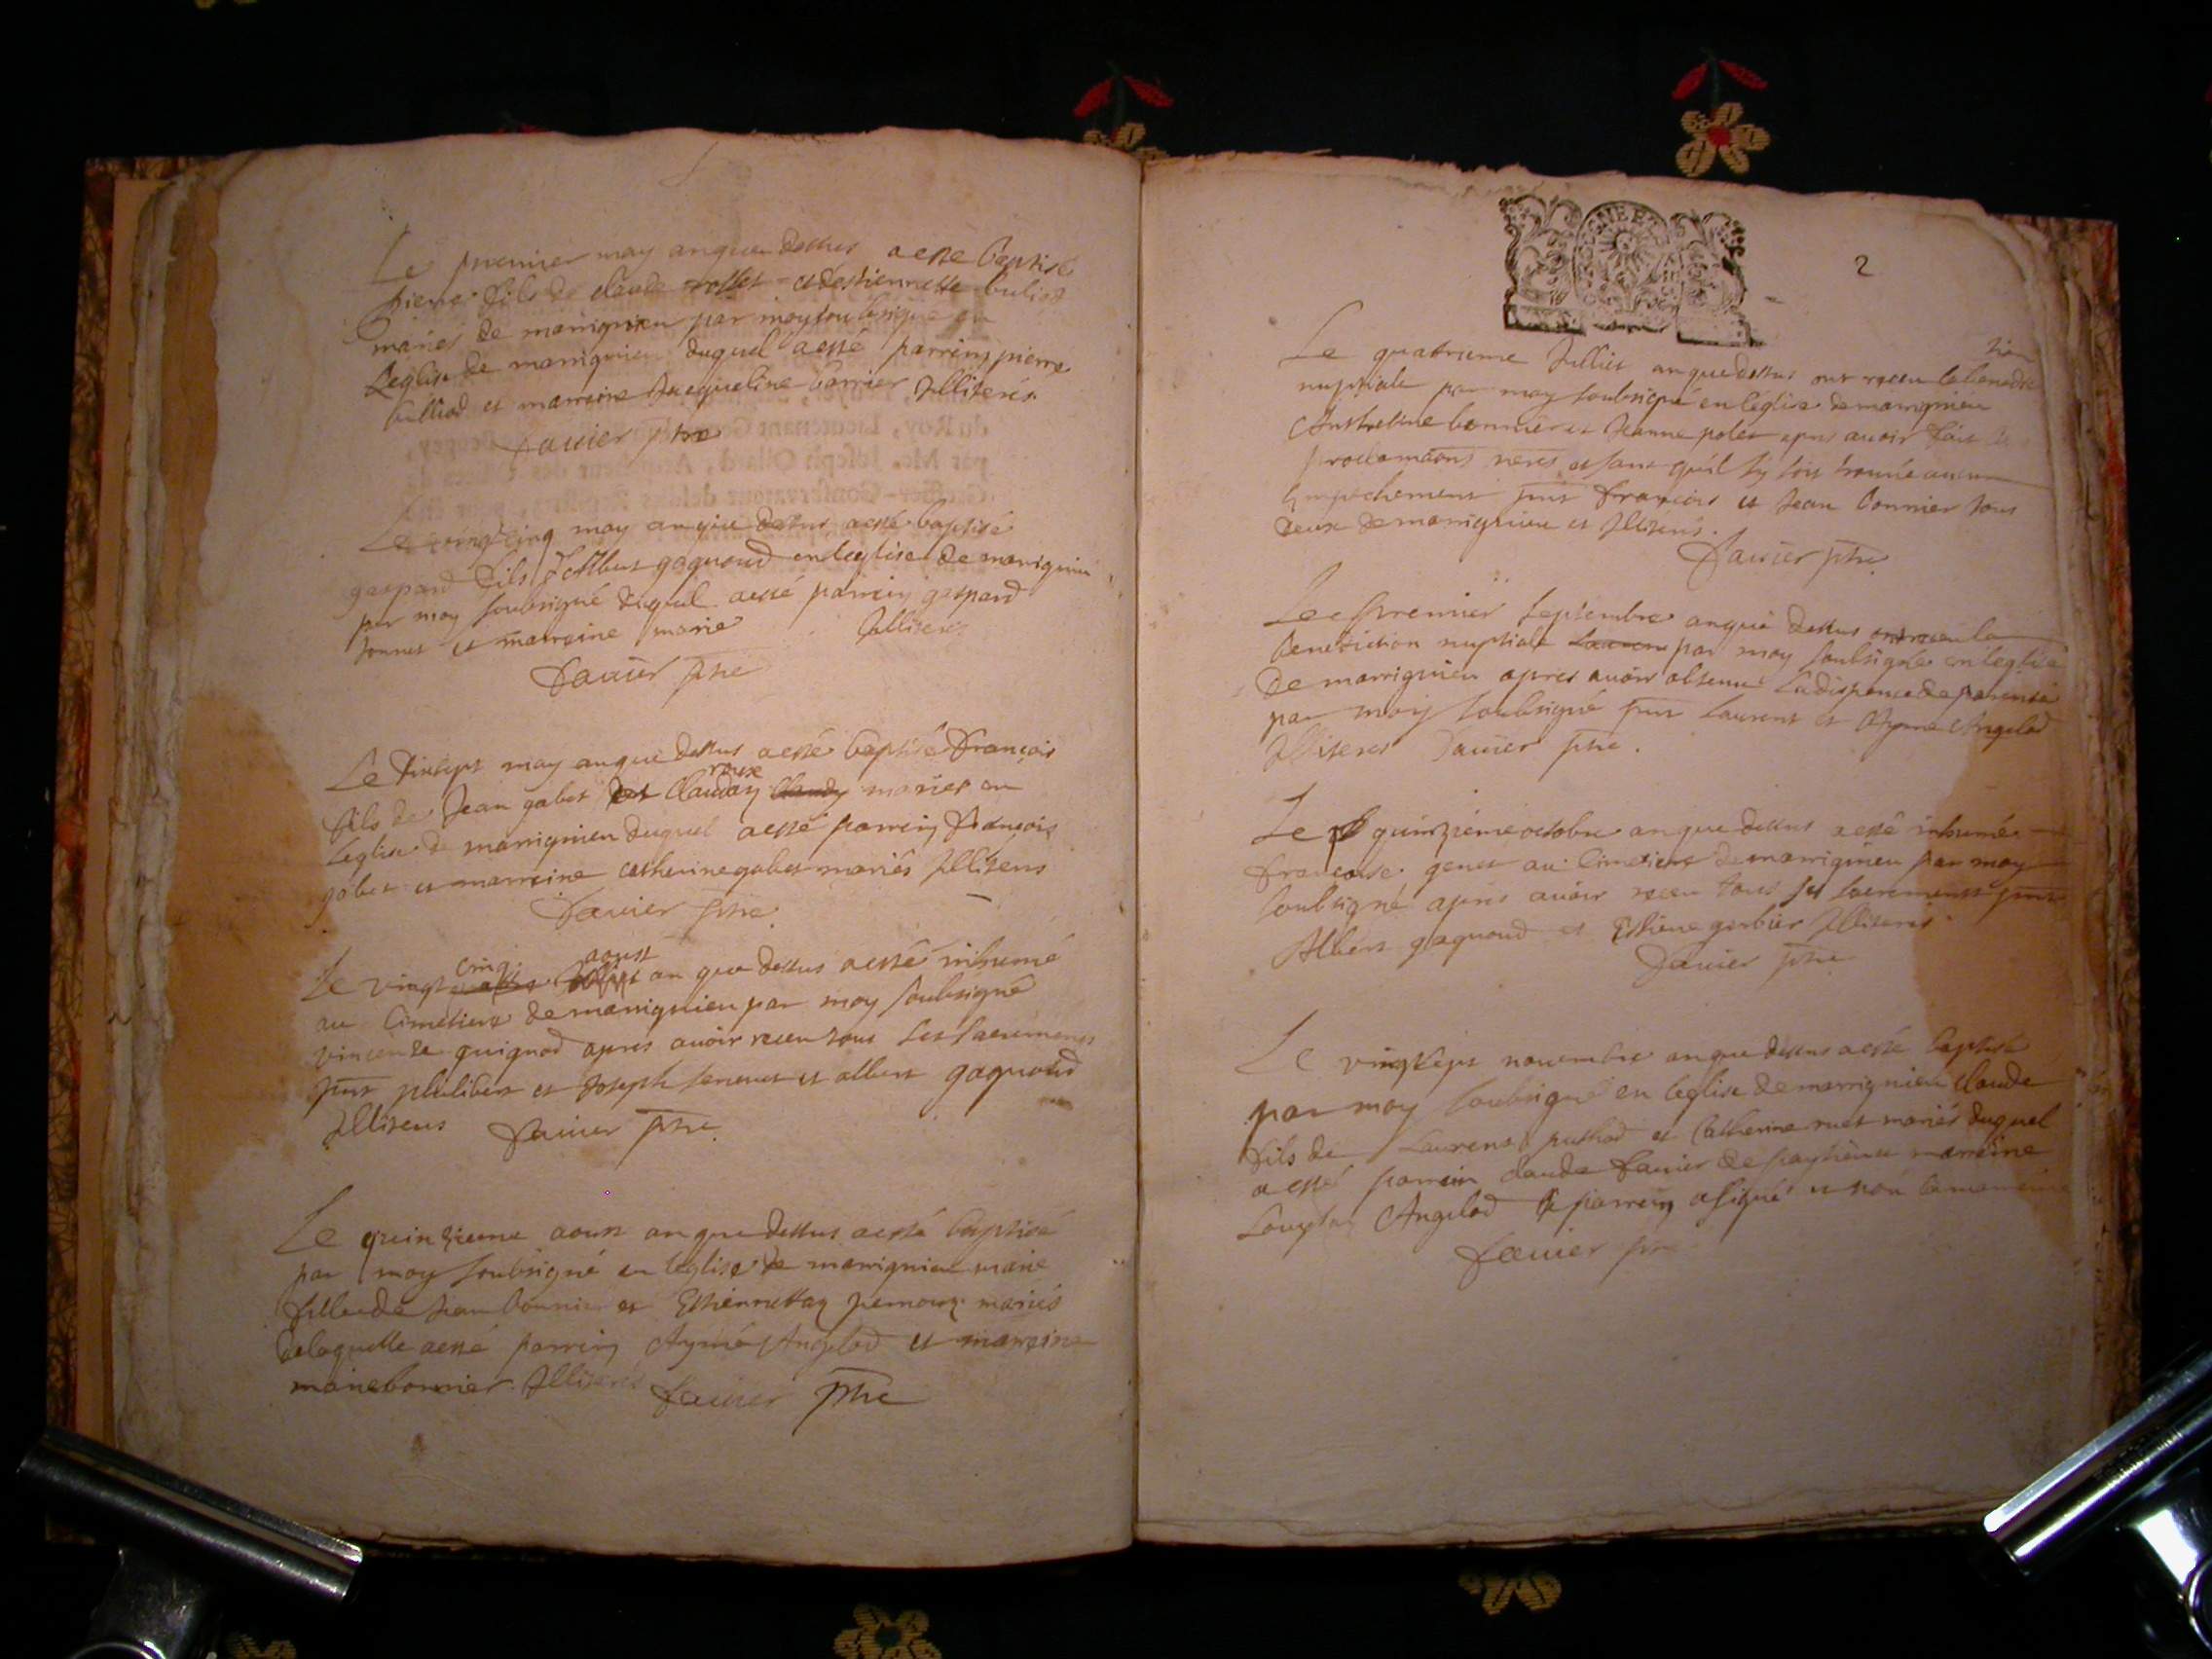 Le premier may an que dessus a esté baptisé
pierre fils de claude rosset et destiennette buliod
mariés de marignieu par moy soubsigné en
Leglise de marignieu duquel a esté parrein pierre
bulliod et marreine Jacqueline barrier Illiterés
favier ptre
Le cing may an que dessus a esté baptisé
gaspard fils Albert gagnoud en leglise de marignieu
par moy soubsigné duquel a esté parrein gaspard
et marreine marie Illiterés
favier ptre
Le dixsept may an que dessus a esté baptisé françois
roux
fils de Jean gabet et Clauday mariés en
Leglise de marignieu duquel a esté parrein françois
gabet et marreine catherine gabet mariés Illiterés
favier ptre
cinq aoust
Le vingt an que dessus a esté inhumé
au Cimetiere de marignieu par moy soubsigné
vincente guignod apres avoir receu tous les sacrements
pnts philibert et Joseph et albert gagnoud
Illiterés favier ptre
Le quinzieme aoust an que dessus a esté baptisé
par moy soubsigné en leglise de marignieu marie
fille de Jean bonnier et Estiennettaz mariés
delaquelle a esté parrein Aymé Angelod et marreine
marie bonnier Illiterés favier ptre
2
tion
Le quatrieme Juillet an que dessus ont receu la benedic
nuptiale par moy soubsigné en leglise de marignieu
Anthelme bonnier et Jeanne polet apres avoir fait
proclamaons et sans quil sy soit trouvé aucun
Empechement pnts françois et Jean bonnier tous
deux de marignieu et Illiterés.
favier ptre
Le premier septembre an que dessus ont receu la
benediction nuptiale par moy soubsigné en leglise
de marignieu apres avoir obtenu La dispence de parenté
par moy soubsigné pnts Laurent et Ayme Angelod
Illiterés favier ptre.
Le quinzieme octobre an que dessus a esté inhumé
françoise genet au Cimetiere de marignieu par moy
soubsigné apres avoir receu tous ses sacrements pnts
Albert gagnoud et Estiene gerbier Illiterés
favier ptre
Le vingtsept novembre an que dessus a esté baptisé
par moy soubsigné en leglise de marignieu claude
fils de Laurens puthod et Catherine ruet mariés duquel
a esté parrein claude favier de marreine
Angelod le parrein a signé et non la marreine
favier ptre